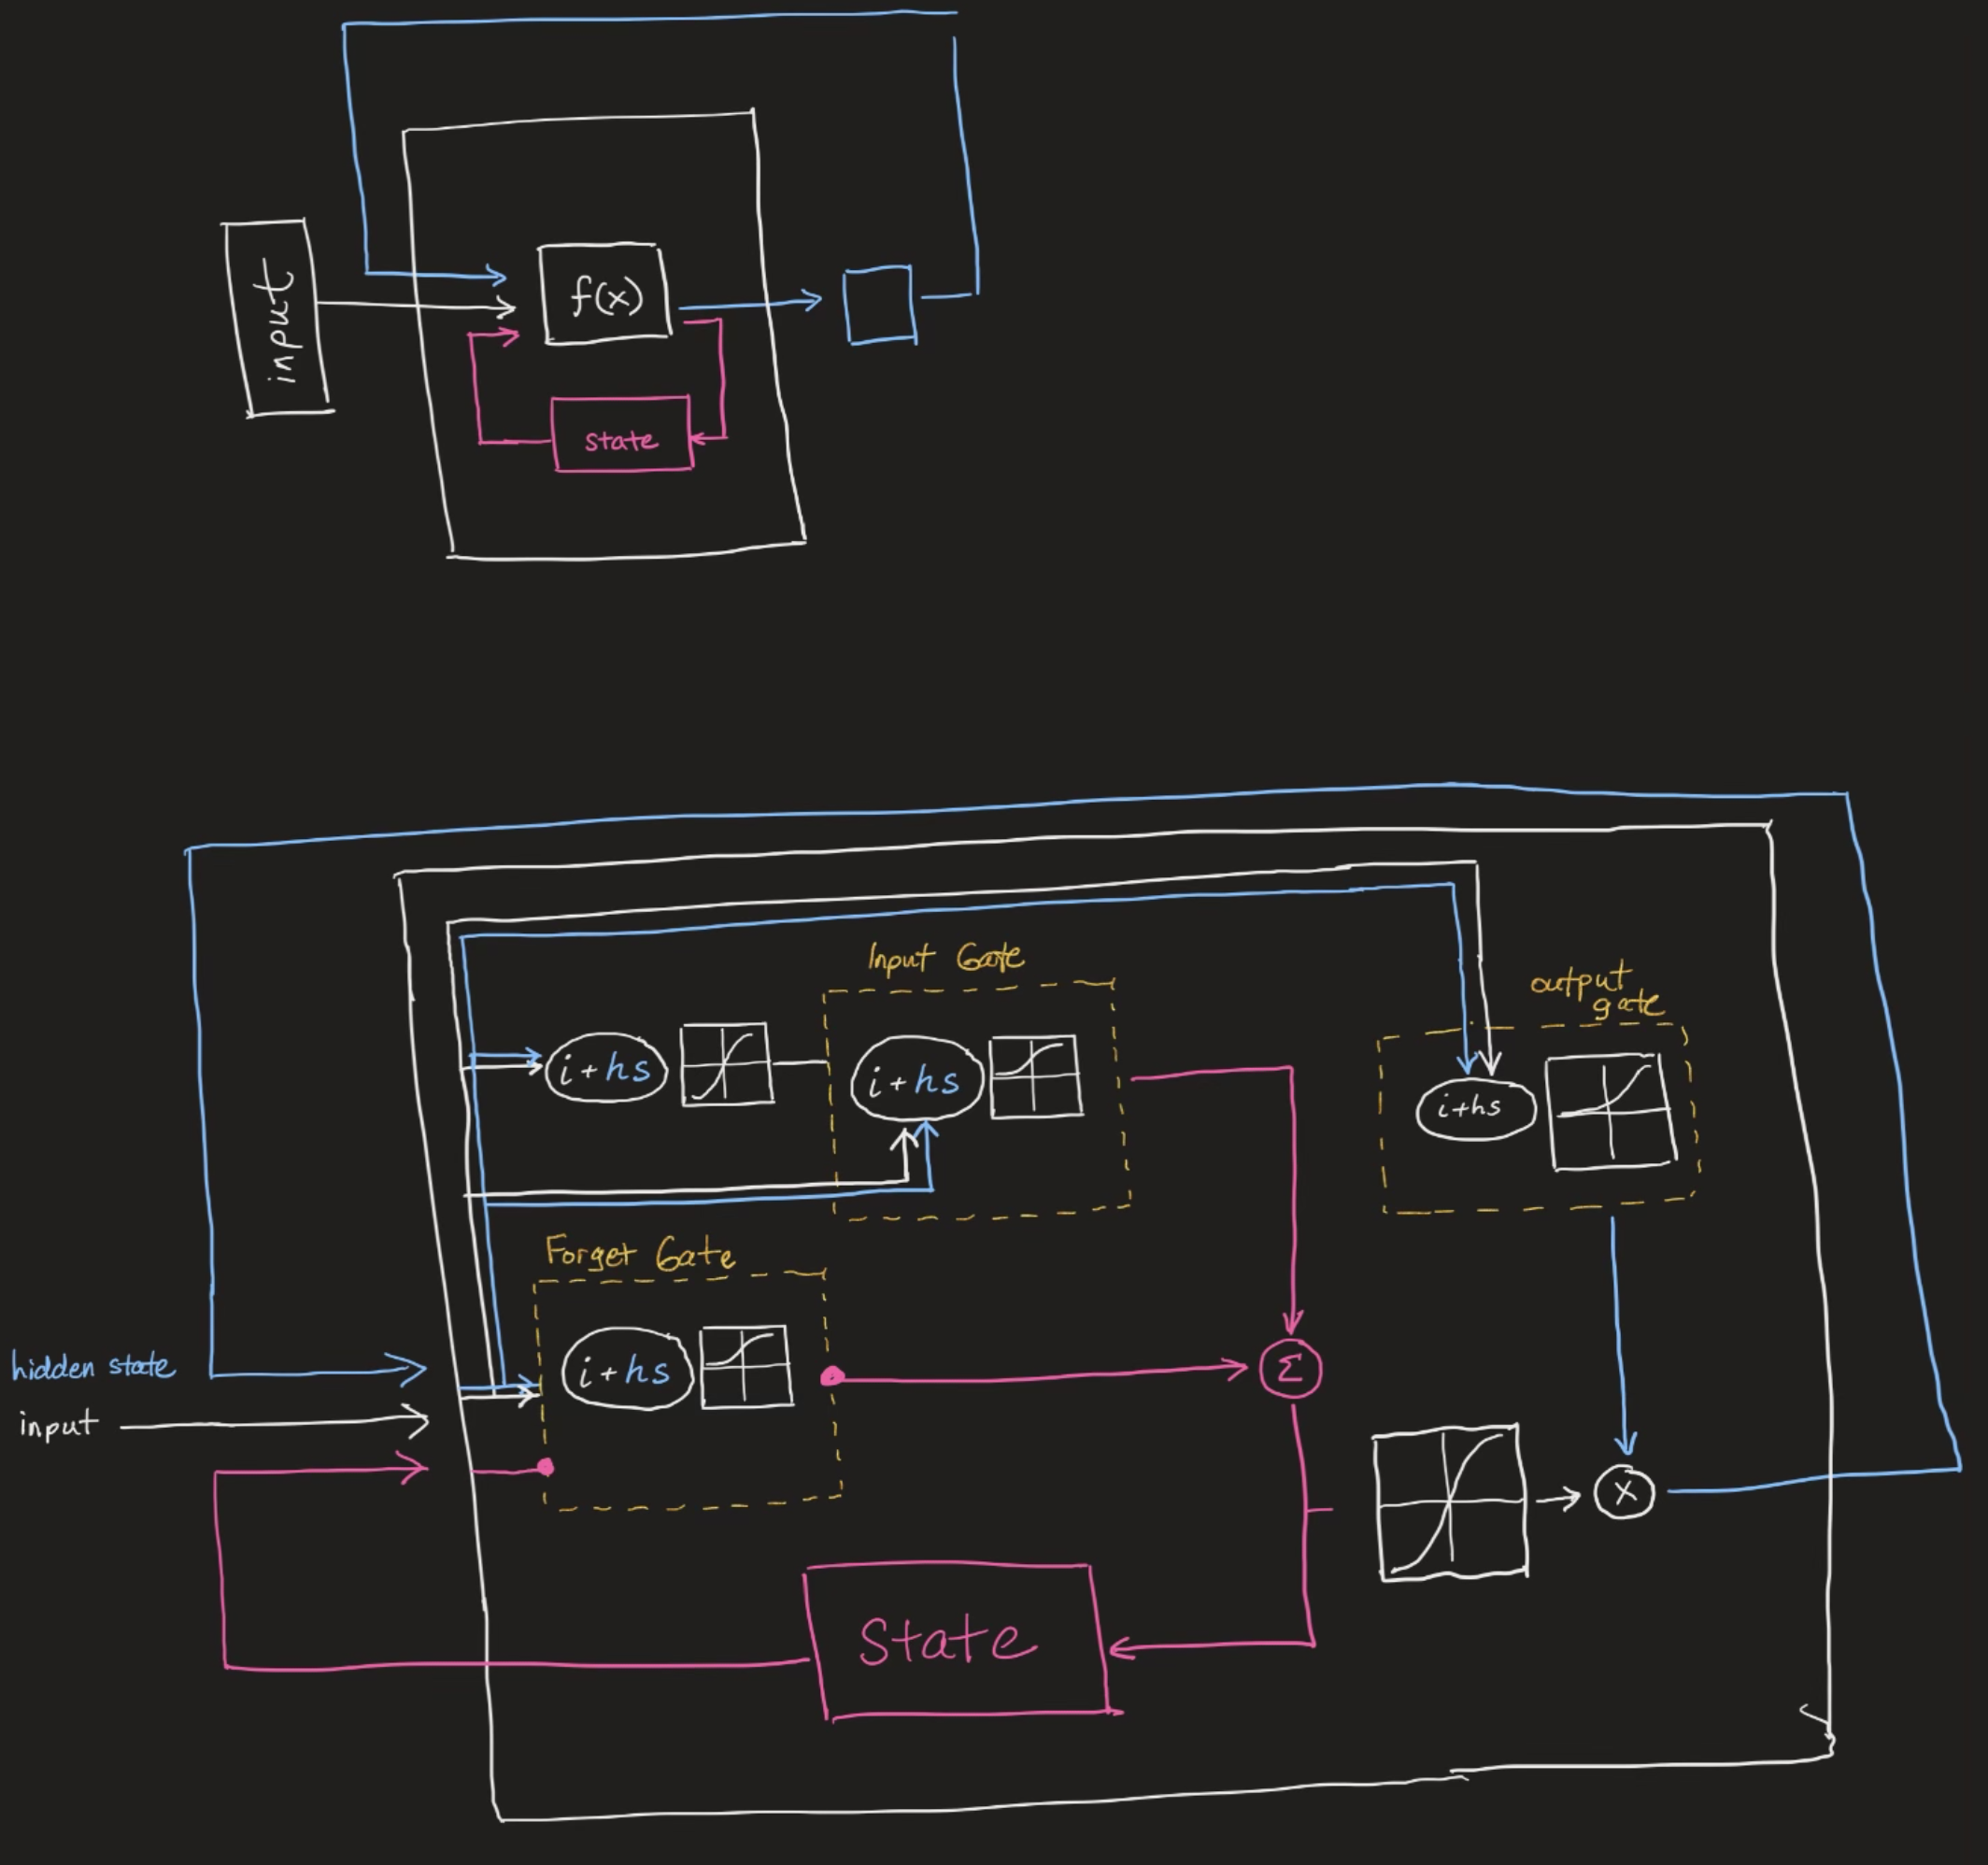 input
f(x)
state
Input Gate
output
gate
i + hs
i + hs
i+hs
Forget Gate
i + hs
hidden state
input
Σ
x
State